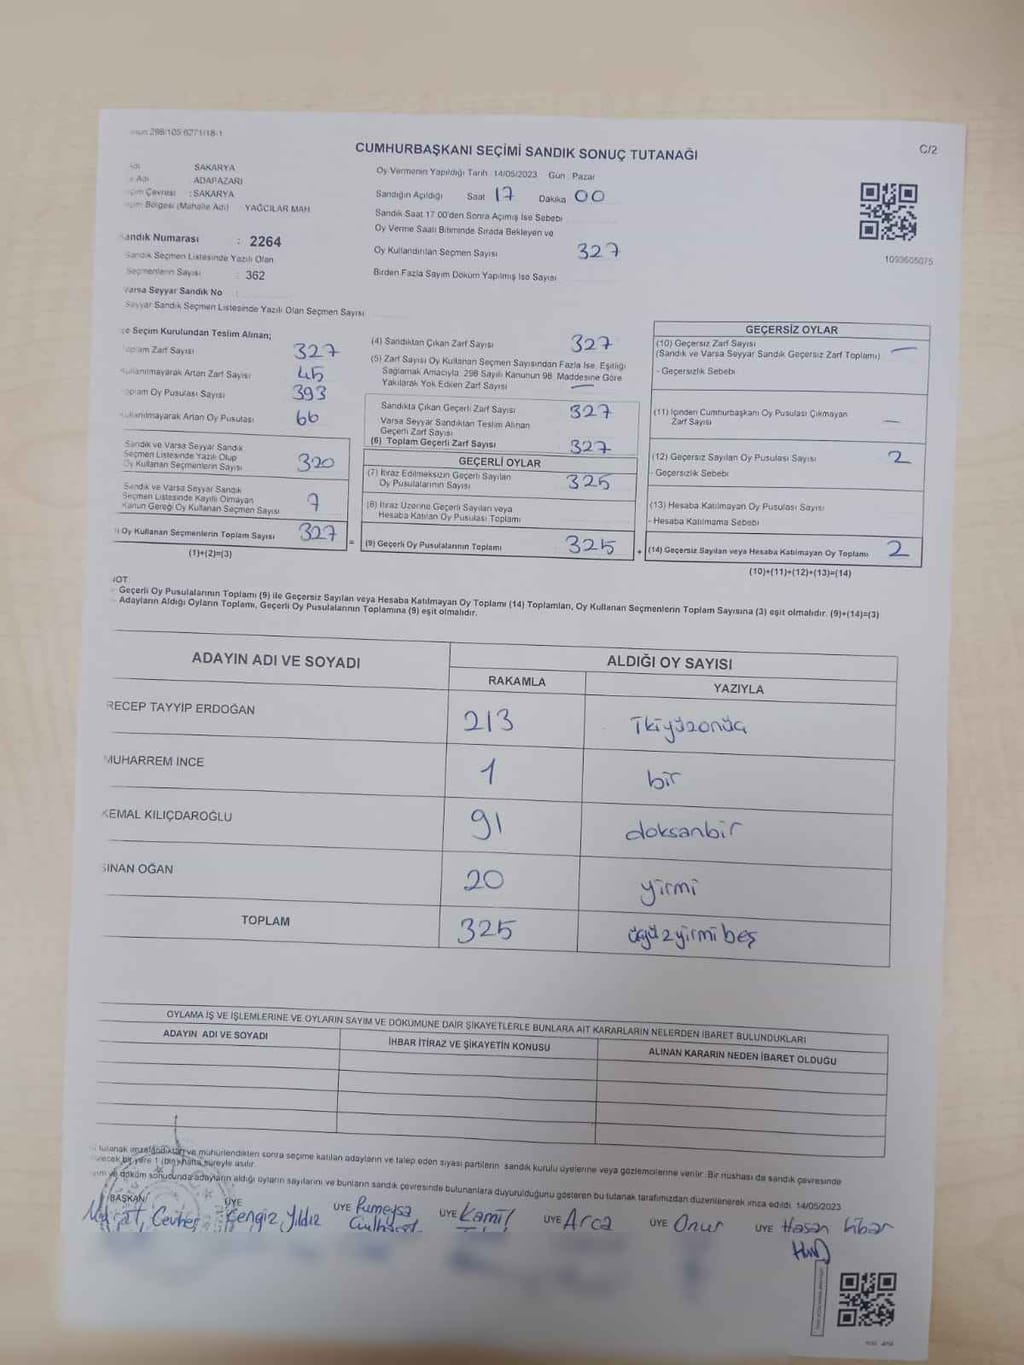 298/105 6271/18-1
C/2
CUMHURBAŞKANI SEÇİMİ SANDIK SONUÇ TUTANAĞI
SAKARYA
Adı ADAPAZARI
Çevresi : SAKARYA
Bölgesi (Mahalle Adı) : YAĞCILAR MAH
Sandık Numarası : 2264
Sandık Seçmen Listesinde Yazılı Olan
Seçmenlerin Sayısı : 362
Varsa Seyyar Sandık No
Seyyar Sandık Seçmen Listesinde Yazılı Olan Seçmen Sayısı
Oy Vermenin Yapıldığı Tarih : 14/05/2023 Gün : Pazar
Sandığın Açıldığı Saat 17 Dakika 00
Sandık Saat 17 00'den Sonra Açımış İse Sebebi
Oy Verme Saati Bitiminde Sırada Bekleyen ve
Oy Kullandırılan Seçmen Sayısı 327
Birden Fazla Sayım Döküm Yapılmış İse Sayısı
1093605075
Seçim Kurulundan Teslim Alınan;
Toplam Zarf Sayısı 327
Kullanılmayarak Artan Zarf Sayısı 45
Toplam Oy Pusulası Sayısı 393
Kullanılmayarak Artan Oy Pusulası 66
Sandık ve Varsa Seyyar Sandık
Seçmen Listesinde Yazılı Olup
Oy Kullanan Seçmenlerin Sayısı 320
Sandık ve Varsa Seyyar Sandık
Seçmen Listesinde Kayıtlı Olmayan
Kanun Gereği Oy Kullanan Seçmen Sayısı 7
Oy Kullanan Seçmenlerin Toplam Sayısı 327 =
(1)+(2)=(3)
(4) Sandıktan Çıkan Zarf Sayısı 327
(5) Zarf Sayısı Oy Kullanan Seçmen Sayısından Fazla İse, Eşitliği
Sağlamak Amacıyla, 298 Sayılı Kanunun 98. Maddesine Göre
Yakılarak Yok Edilen Zarf Sayısı —
Sandıkta Çıkan Geçerli Zarf Sayısı 327
Varsa Seyyar Sandıktan Teslim Alınan
Geçerli Zarf Sayısı
(6) Toplam Geçerli Zarf Sayısı 327
GEÇERLİ OYLAR
(7) İtiraz Edilmeksizin Geçerli Sayılan
Oy Pusulalarının Sayısı 325
(8) İtiraz Üzerine Geçerli Sayılan veya
Hesaba Katılan Oy Pusulası Toplamı
(9) Geçerli Oy Pusulalarının Toplamı 325 +
GEÇERSİZ OYLAR
(10) Geçersiz Zarf Sayısı —
(Sandık ve Varsa Seyyar Sandık Geçersiz Zarf Toplamı)
- Geçersizlik Sebebi
(11) İçinden Cumhurbaşkanı Oy Pusulası Çıkmayan
Zarf Sayısı —
(12) Geçersiz Sayılan Oy Pusulası Sayısı 2
- Geçersizlik Sebebi
(13) Hesaba Katılmayan Oy Pusulası Sayısı
- Hesaba Katılmama Sebebi
(14) Geçersiz Sayılan veya Hesaba Katılmayan Oy Toplamı 2
(10)+(11)+(12)+(13)=(14)
NOT:
Geçerli Oy Pusulalarının Toplamı (9) ile Geçersiz Sayılan veya Hesaba Katılmayan Oy Toplamı (14) Toplamları, Oy Kullanan Seçmenlerin Toplam Sayısına (3) eşit olmalıdır. (9)+(14)=(3)
Adayların Aldığı Oyların Toplamı, Geçerli Oy Pusulalarının Toplamına (9) eşit olmalıdır.
ADAYIN ADI VE SOYADI ALDIĞI OY SAYISI
RAKAMLA YAZIYLA
RECEP TAYYİP ERDOĞAN 213 ikiyüzonüç
MUHARREM İNCE 1 bir
KEMAL KILIÇDAROĞLU 91 doksanbir
SİNAN OĞAN 20 yirmi
TOPLAM 325 üçyüzyirmibeş
OYLAMA İŞ VE İŞLEMLERİNE VE OYLARIN SAYIM VE DÖKÜMÜNE DAİR ŞİKAYETLERLE BUNLARA AİT KARARLARIN NELERDEN İBARET BULUNDUKLARI
ADAYIN ADI VE SOYADI İHBAR İTİRAZ VE ŞİKAYETİN KONUSU ALINAN KARARIN NEDEN İBARET OLDUĞU
tutanak imzalandıktan ve mühürlendikten sonra seçime katılan adayların ve talep eden siyasi partilerin sandık kurulu üyelerine veya gözlemcilerine verilir. Bir nüshası da sandık çevresinde
bir yere 1 (bir) hafta süreyle asılır.
ve döküm sonucunda adayların aldığı oyların sayılarını ve bunların sandık çevresinde bulunanlara duyurulduğunu gösteren bu tutanak tarafımızdan düzenlenerek imza edildi. 14/05/2023
BAŞKAN ÜYE ÜYE ÜYE ÜYE ÜYE ÜYE
Murat Cevher Cengiz Yıldız Rumeysa Kamil Arca Onur Hasan